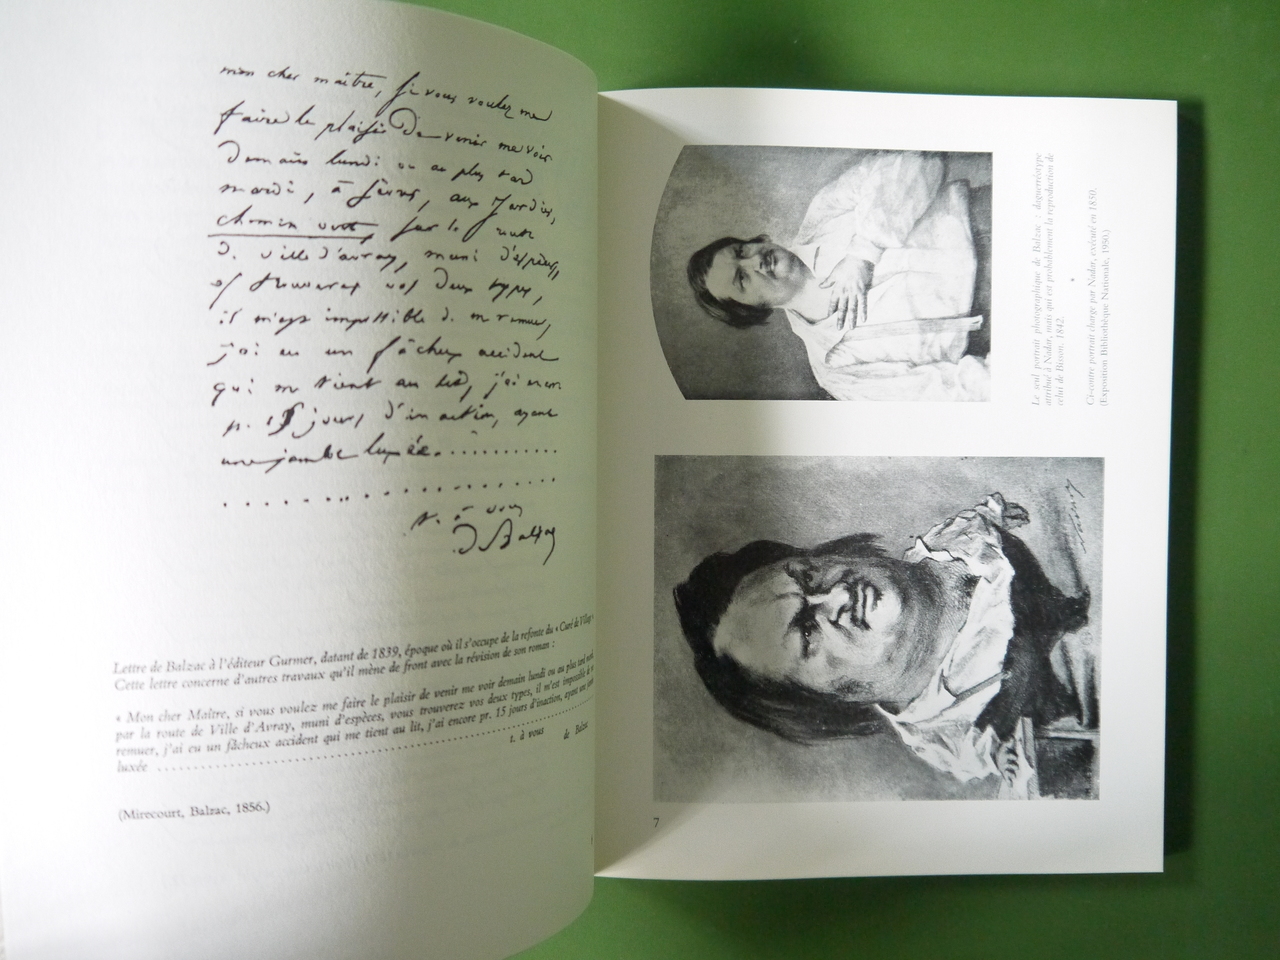 mon cher maître, si vous voulez me
faire le plaisir de venir me voir
demain lundi ou au plus tard
mardi, à Sèvres, aux Jardies,
chemin vert, par la route
de ville d'avray, muni d'espèces,
vous trouverez vos deux types,
il m'est impossible de me remuer,
j'ai eu un fâcheux accident
qui me tient au lit, j'ai encore
pr. 15 jours d'inaction, ayant
une jambe luxée. . . . . . . . . . . .
. . . . . . . . . . . . . . . . . .
t. à vous
de Balzac
Lettre de Balzac à l'éditeur Gurmer, datant de 1839, époque où il s'occupe de la refonte du « Curé de Village »
Cette lettre concerne d'autres travaux qu'il mène de front avec la révision de son roman :
« Mon cher Maître, si vous voulez me faire le plaisir de venir me voir demain lundi ou au plus tard
par la route de Ville d'Avray, muni d'espèces, vous trouverez vos deux types, il m'est impossible de
remuer, j'ai eu un fâcheux accident qui me tient au lit, j'ai encore pr. 15 jours d'inaction, ayant une
luxée . . . . . . . . . . . . . . . . . . . . . . . . . . . . . .
t. à vous
de Balzac
(Mirecourt, Balzac, 1856.)
Le seul portrait photographique de Balzac : daguerréotype
attribué à Nadar, mais qui est probablement la reproduction de
celui de Bisson. 1842.
*
Ci-contre portrait charge par Nadar, exécuté en 1850.
(Exposition Bibliothèque Nationale, 1950.)
Nadar
7